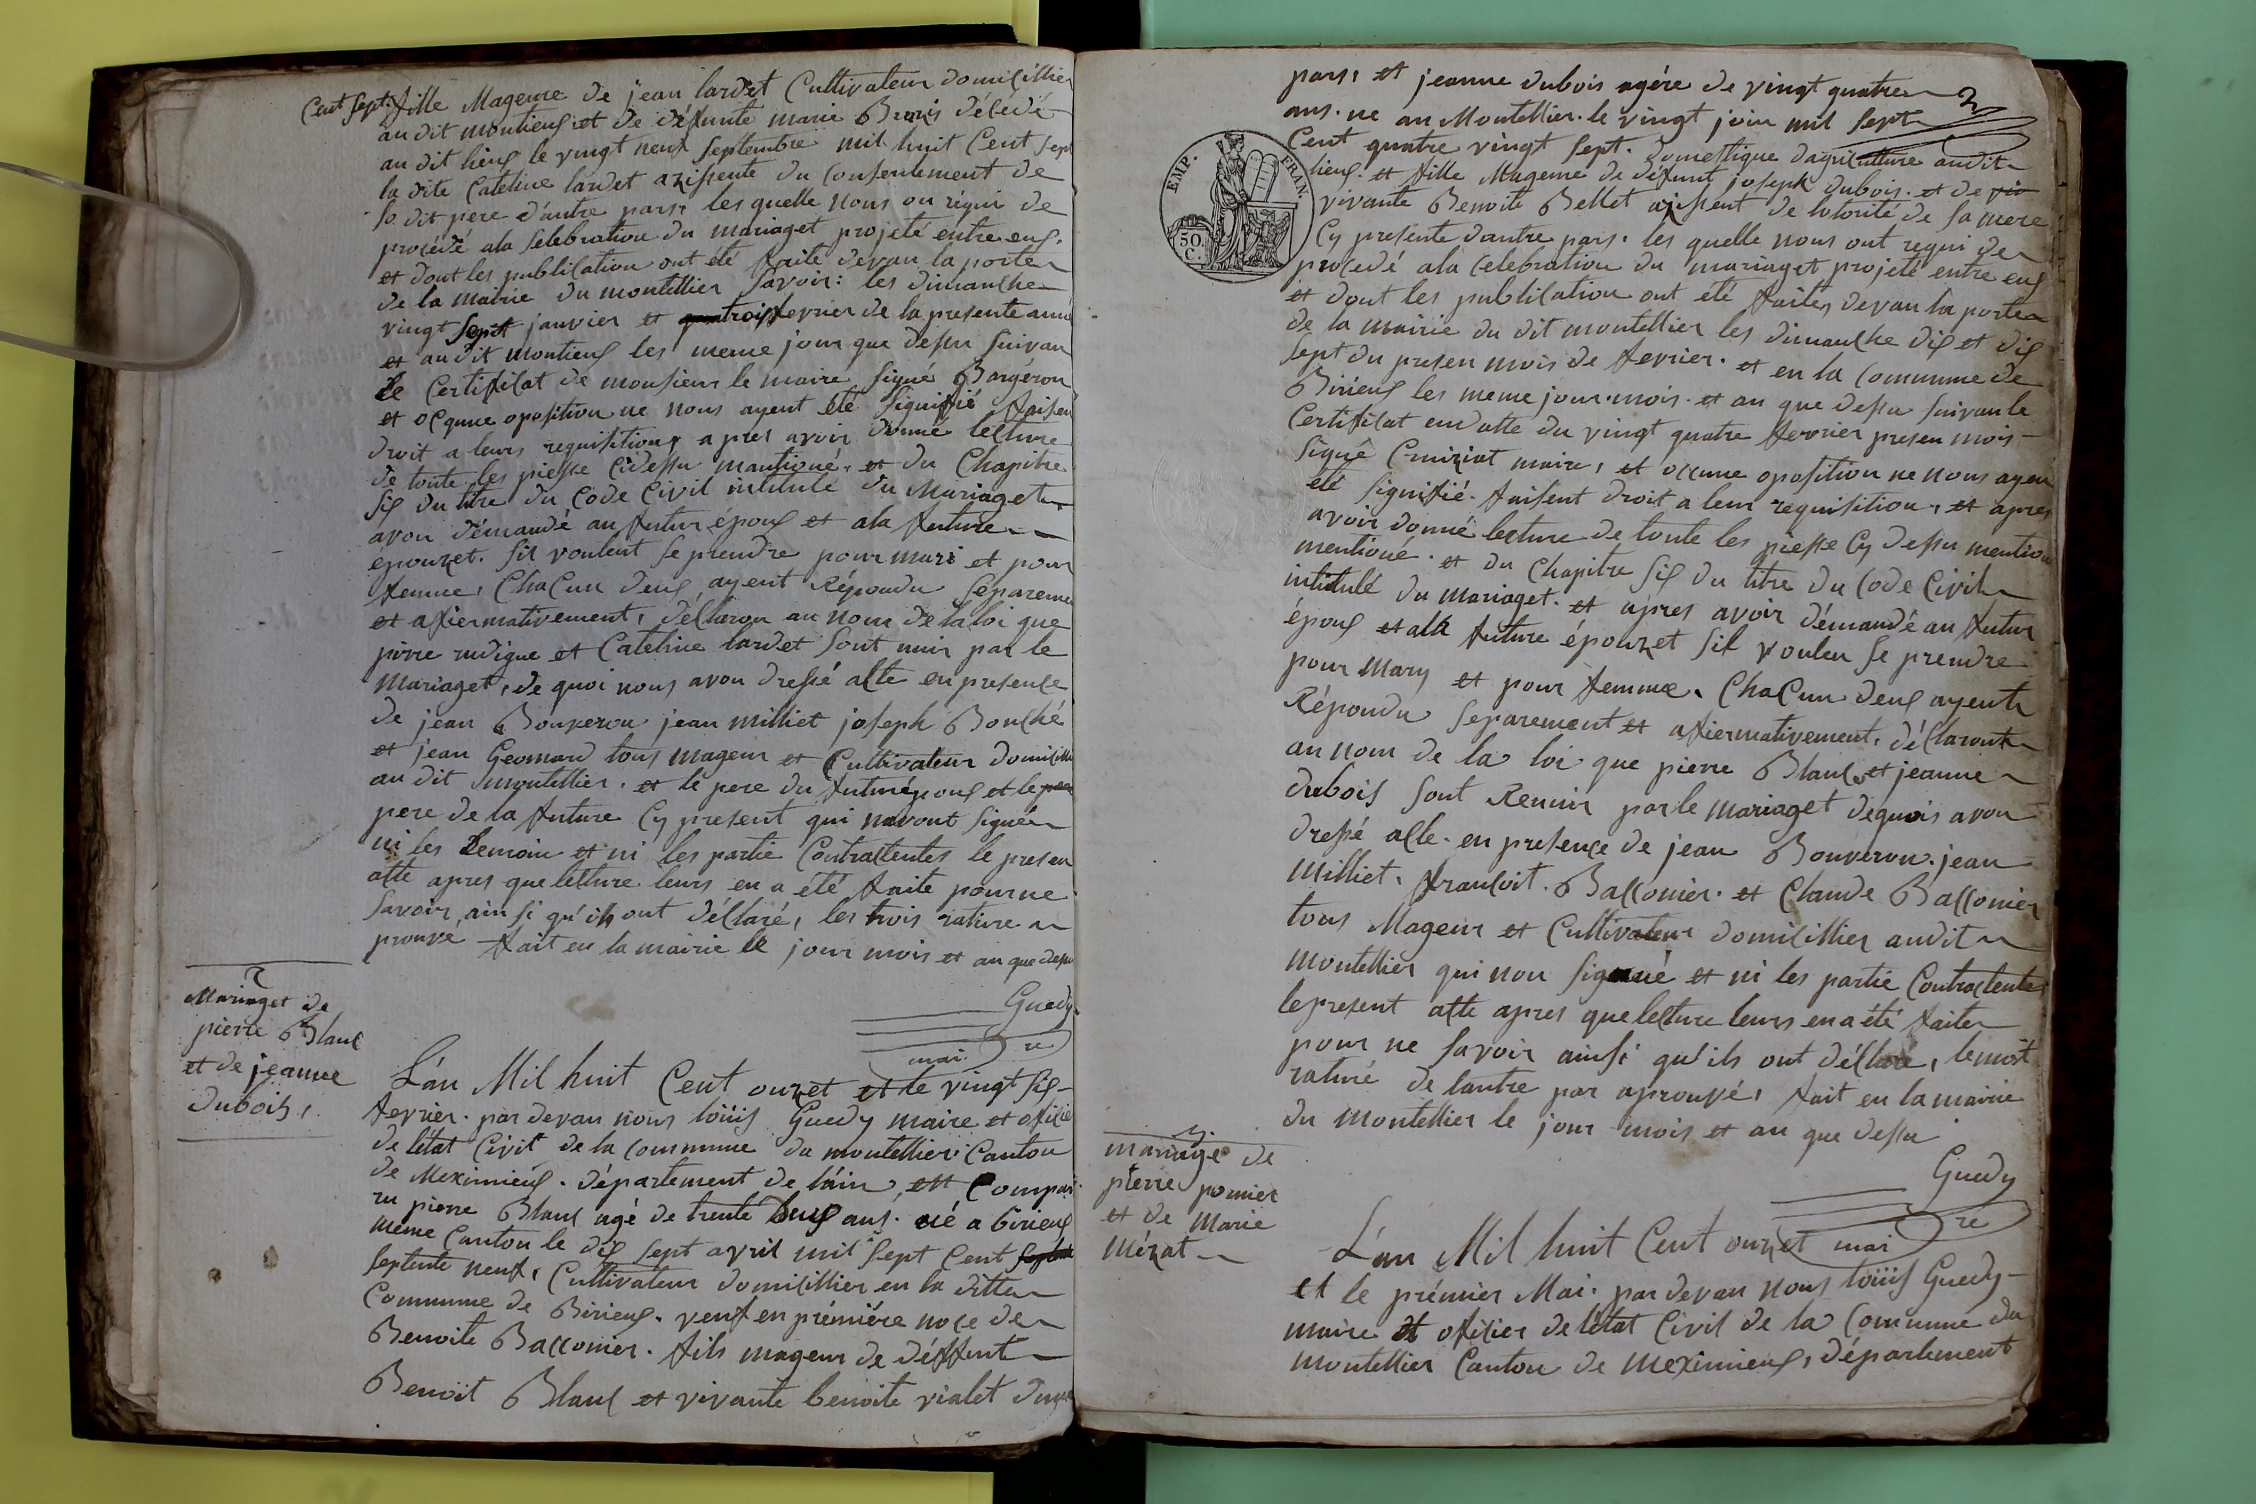 Cent sept. fille Mageure de jean lardet Cultivateur domicillier
au dit montieux et de défunte marie décedé
au dit lieux le vingt neuf septembre mil huit Cent sept
la dite Cateline lardet azistente du Consentement de
so dit pere d'autre pars, les quelle nous on réqui de
procédé ala selebration du mariaget projeté entre eux,
et dont les publication ont été faite devan la porte
de la mairie du montellier Savoir: les dimanche
vingt sept janvier et trois fevrier de la presente anné
et au dit montieux les meme jour que dessu suivan
le Certificat de monsieur le maire signé Bargéron
et ocqune oposition ne nous ayent été signifié faisen
droit a leurs requisition, apres avoir donné lecture
de toute les piesse cidessu mantioné, et du Chapitre
six du titre du Code Civil intitulé du Mariaget
avon démandé au futur époux et ala future
épouzet. sil voulent se prendre pour mari et pour
femme, ChaCun deux ayent Répondu séparemen
et afiermativement, décleron au nom de la loi que
pirre rudigue et Cateline lardet sont unir par le
mariaget, de quoi nous avon dressé acte en presence
de jean Bouveron jean milliet joseph Bouché
et jean Geomard tous mageur et Cultivateur domicillie
au dit montellier. et le pere du futur époux et le
pere de la future Cy present qui navont signé
ni les Temoin et ni les partie Contractentes le presen
atte apres que lecture leurs en a été faite pour ne
savoir, ainsi qu'ils ont décléré, les trois rature
prouvé fait en la mairie le jour mois et an que dessu
Guedy
maire
Mariaget de
pierre Blanc
et de jeanne
Dubois,
L'an Mil huit Cent ouzet et le vingt six
fevrier. par devan nous loüis Guedy maire et oficié
de l'état Civil de la Commune du montellier Canton
de Meximieux. département de l'ain, est Compar
ru pierre Blanc agé de trente deux ans. né a birieux
meme Canton le dix sept avril mil sept Cent
septente neuf, Cultivateur domicillier en la ditte
Commune de Birieux. veuf en prémiére noce de
Benoite Bacconier. fils mageur de déffunt
Benoit Blanc et vivante benoite vialet d'une
pars, et jeanne dubois agére de vingt quatre
ans. ne au Montellier. le vingt juin mil sept
Cent quatre vingt sept. Domestique dagriculture audit
lieux. et fille Mageure de défunt joseph dubois. et de
vivante Benoite Bellet azistent de lotorité de sa mere
Cy presente dautre pars. les quelle nous ont requi de
procedé ala Celebration du mariaget projeté entre eux
et dont les publication ont été faite, devan la porte
de la mairie du dit montellier les dimanche dix et dix
sept du presen mois de fevrier. et en la Commune de
Birieux les meme jour. mois. et an que dessu suivan le
Certificat en datte du vingt quatre fevrier presen mois
signé Cruiziat maire, et occune oposition ne nous ayen
été signifié. faisent droit a leur requisition, et apres
avoir donné lecture de toute les piesse Cy dessu mention
mentioné. et du Chapitre six du titre du Code Civil
intitulé du mariaget. et apres avoir démandé au futur
époux et ala future épouzet sil voulen se prendre
pour mary et pour femme. ChaCun deux ayent
Répondu separement et afiermativement, déclaront
au nom de la loi que pierre Blanc et jeanne
dubois sont Reunir par le mariaget dequois avon
dressé acte. en presence de jean Bouveron. jean
Milliet. françoit. Bacconier. et Claude Bacconier
tous Mageur et Cultivateur domicillier audit
montellier qui non signé et ni les partie Contractente
le present atte apres que lecture leurs en a été faite
pour ne savoir ainsi qu'ils ont décléré, le moit
raturé de lautre par aprouvé, fait en la mairie
du montellier le jour mois et an que dessu
Guedy
maire
EMP. FRAN.
50.
C.
mariage de
pierre pomier
et de Marie
Mézat
L'an Mil huit Cent ouzet
et le prémier Mai. par devan nous loüis Guedy
maire et oficier de l'état Civil de la Commune du
montellier Canton de meximieux, département